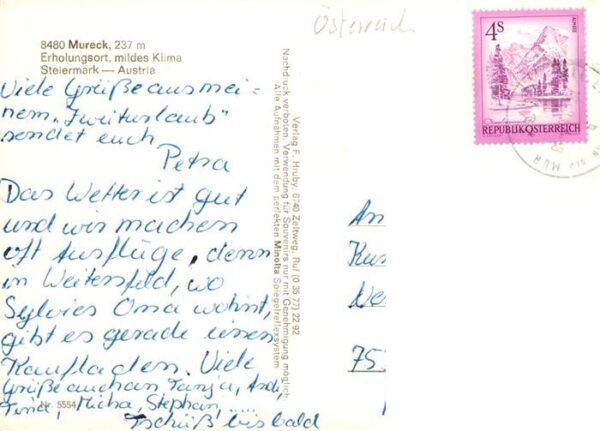 Österreich
8480 Mureck, 237 m
Erholungsort, mildes Klima
Steiermark — Austria
Viele Grüße aus mei-
nem „Zweiturlaub"
sendet euch
Petra
Das Wetter ist gut
und wir machen
oft Ausflüge, denn
in Weitersfeld, wo
Sylvies Oma wohnt,
gibt es gerade einen
Kaufladen. Viele
Grüße auch an Tanja, Andi,
Tina, Micha, Stephan, .....
Tschüß bis bald
Nr. 5554
Verlag F. Hruby, 8740 Zeltweg, Ruf (0 35 77) 22 92
Nachdruck verboten. Verwendung für Souvenirs nur mit Genehmigung möglich
Alle Aufnahmen mit dem perfekten Minolta Spiegelreflexsystem
4S
ALMSEE
REPUBLIK ÖSTERREICH
MUR
An
75